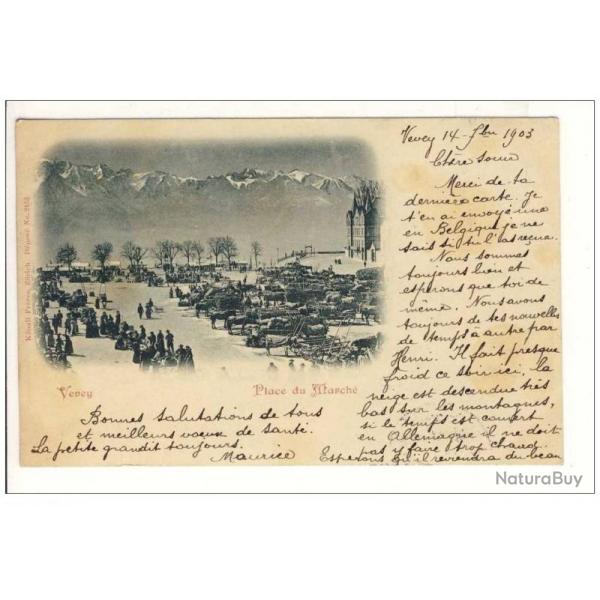 Vevey 14 - 7bre 1903
Chère soeur
Merci de ta
dernière carte. Je
t'en ai envoyé une
en Belgique je ne
sais si tu l'as reçue.
Nous sommes
toujours bien et
espérons que toi de
même. Nous avons
toujours de tes nouvelles
de temps à autre par
Henri. Il fait presque
froid ce soir ici, la
neige est descendue très
bas sur les montagnes,
si le temps est couvert
en Allemagne il ne doit
pas y faire trop chaud.
Espérons qu'il reviendra du beau
Vevey
Place du Marché
Bonnes salutations de tous
et meilleurs voeux de santé.
La petite grandit toujours.
Maurice
Künzli Frères, Zürich Déposé No.
NaturaBuy